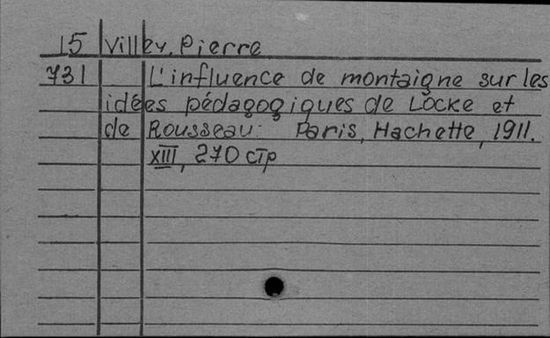 15 Villey, Pierre
731 L'influence de montaigne sur les
idées pédagogiques de Locke et
de Rousseau. Paris, Hachette, 1911.
XIII, 270 стр